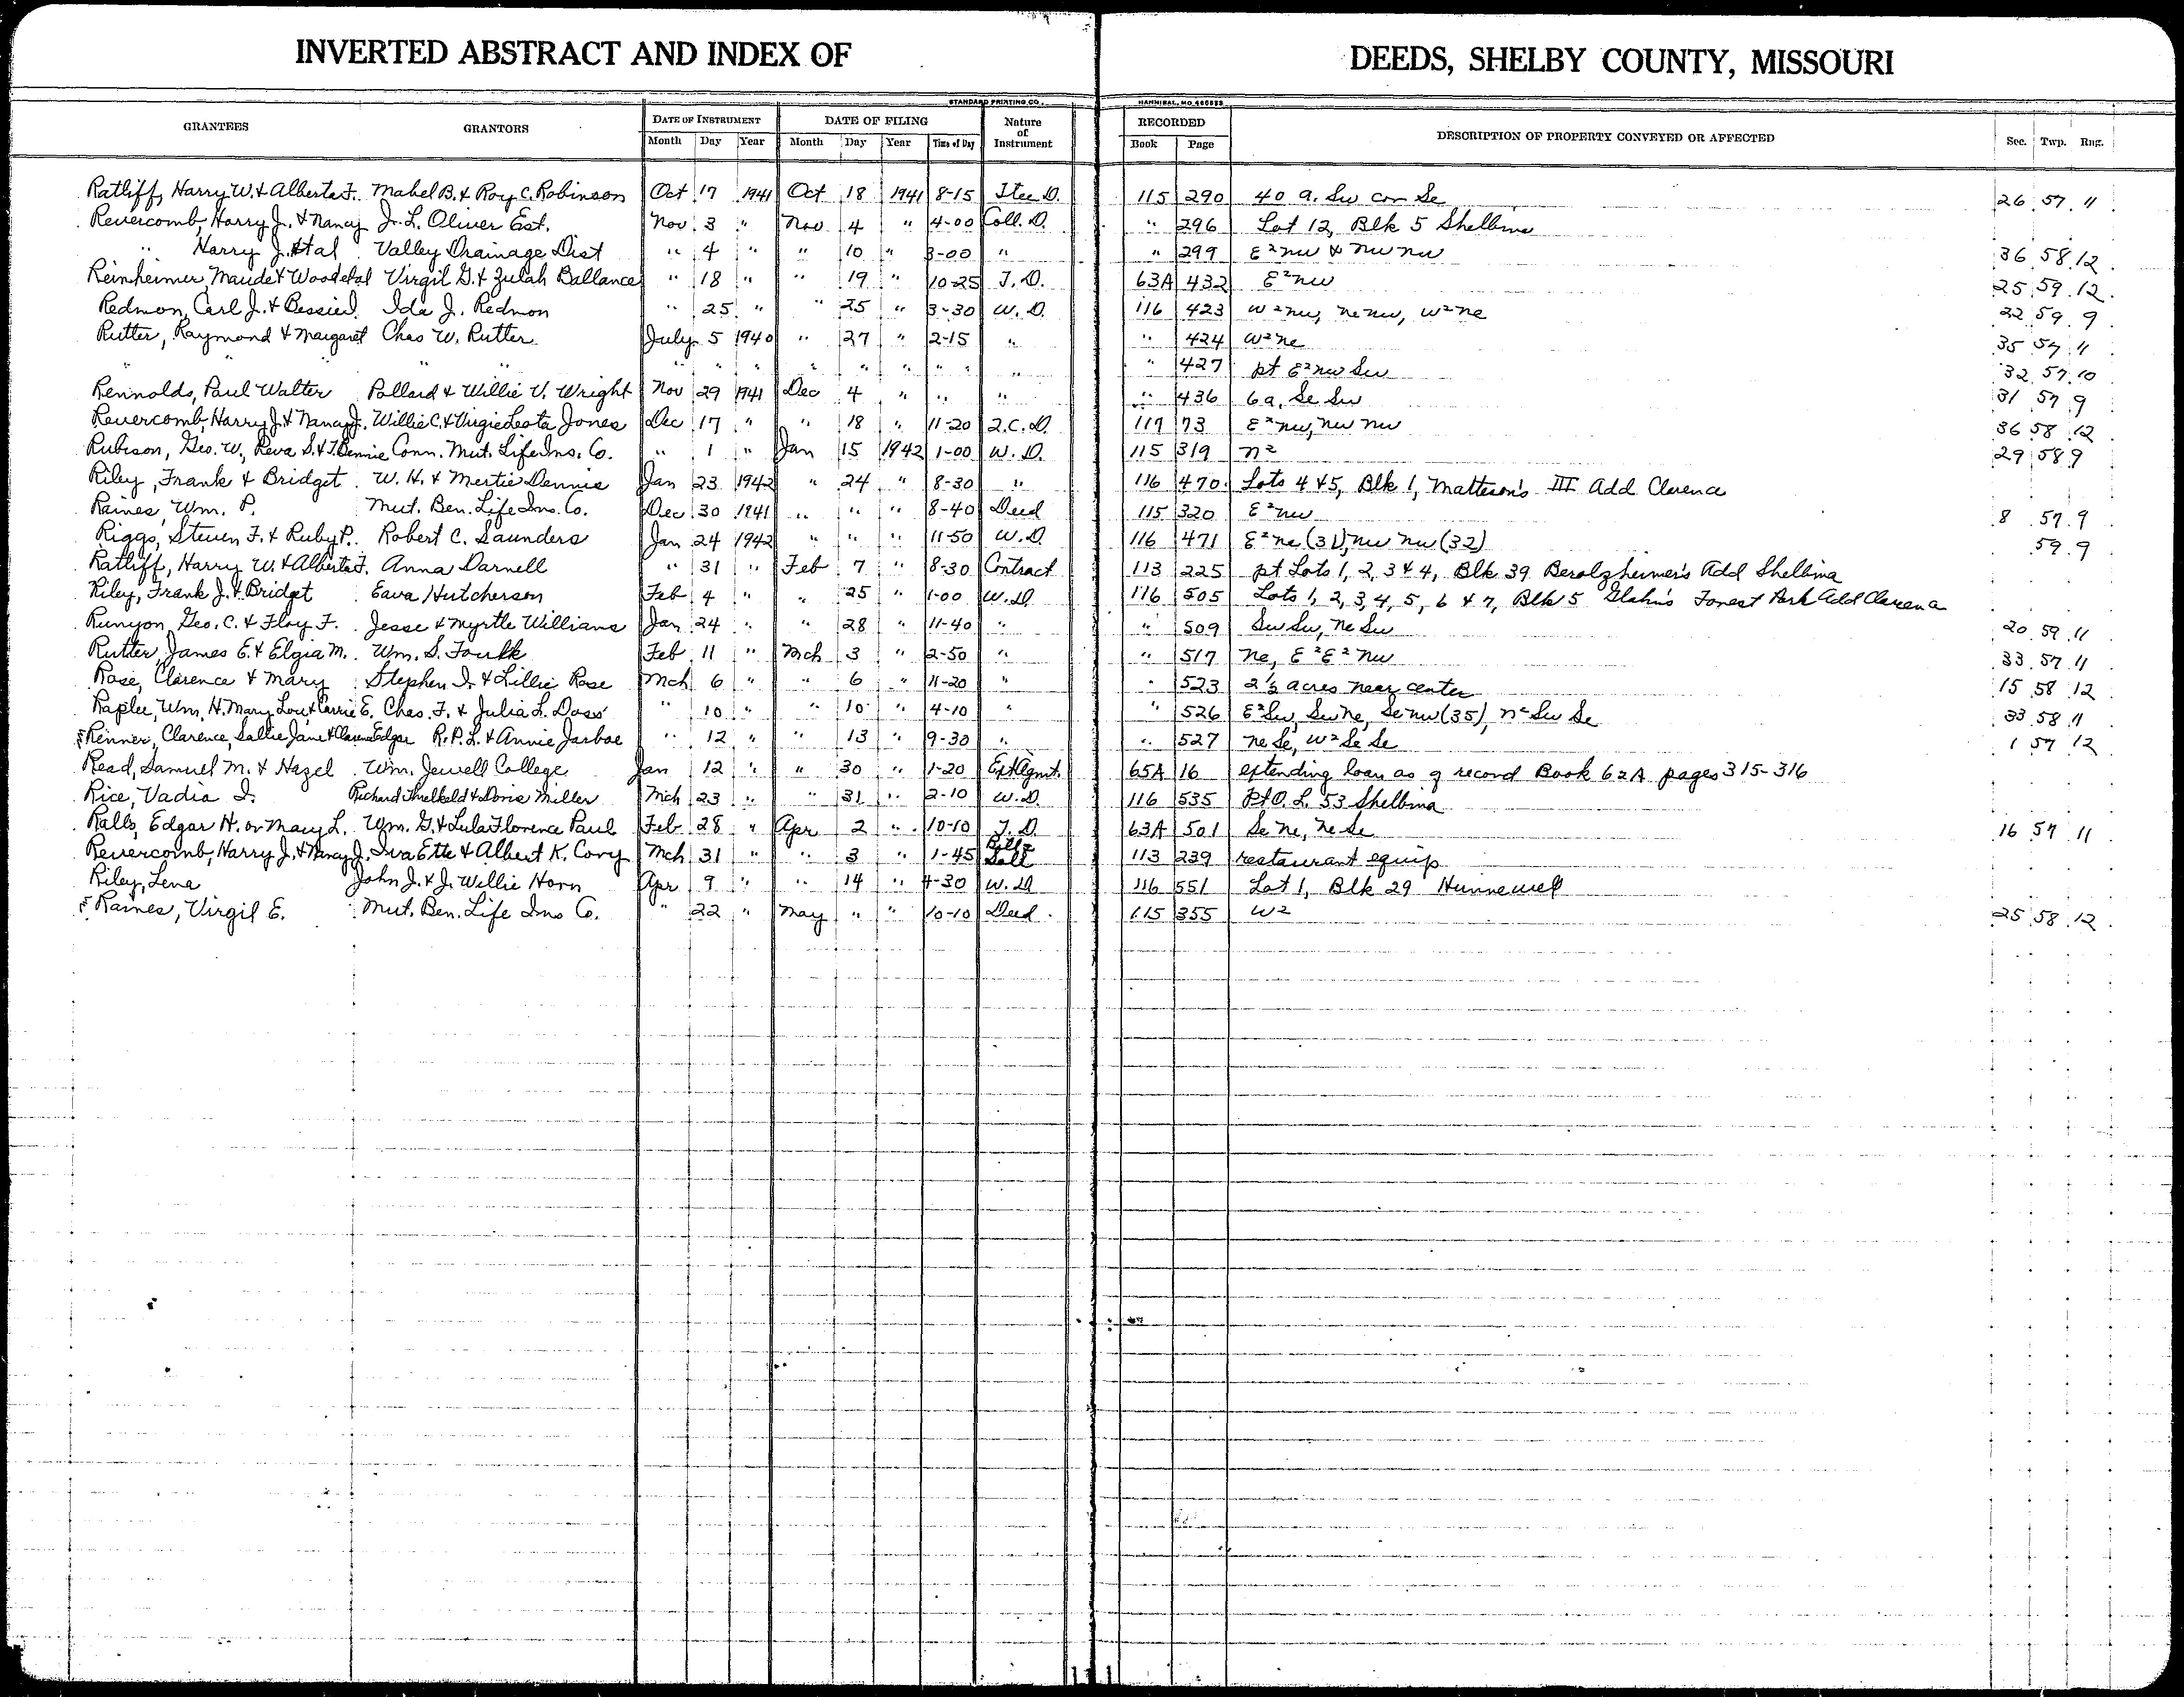 INVERTED ABSTRACT AND INDEX OF DEEDS, SHELBY COUNTY, MISSOURI
STANDARD PRINTING CO. HANNIBAL, MO.
GRANTEES GRANTORS DATE OF INSTRUMENT DATE OF FILING Nature of Instrument RECORDED DESCRIPTION OF PROPERTY CONVEYED OR AFFECTED Sec. Twp. Rng.
Month Day Year Month Day Year Time of Day Book Page
Ratliff, Harry W. & Alberta F. Mabel B. & Roy C. Robinson Oct 17 1941 Oct 18 1941 8-15 Tee D. 115 290 40 a. Sw cor Se 26 57 11
Revercomb, Harry J. & Nancy J. L. Oliver Est. Nov 3 " Nov 4 " 4-00 Coll. D. " 296 Lot 12, Blk 5 Shelbina
" Harry J. Et al Valley Drainage Dist " 4 " " 10 " 3-00 " " 299 E² nw & nw nw 36 58 12
Reinheimer, Maude & Wood etal Virgil G. & Zulah Ballance " 18 " " 19 " 10-25 T. D. 63A 432 E² nw 25 59 12
Redmon, Carl J. & Bessie Ida J. Redmon " 25 " " 25 " 3-30 W. D. 116 423 W² nw, ne nw, W² ne 22 59 9
Rutter, Raymond & Margaret Chas W. Rutter July 5 1940 " 27 " 2-15 " " 424 W² ne 35 57 11
" " " " " " " " " " " " 427 pt E² nw Sw 32 57 10
Rennolds, Paul Walter Pollard & Willie V. Wright Nov 29 1941 Dec 4 " " " " 436 6a, Se Sw 31 57 9
Revercomb, Harry J. & Nancy J. Willie C. & Virgie Leota Jones Dec 17 " " 18 " 11-20 Q. C. D. 117 73 E² nw, nw nw 36 58 12
Rubison, Geo. W., Reva S. & T. Bennie Conn. Mut. Life Ins. Co. " 1 " Jan 15 1942 1-00 W. D. 115 319 n² 29 58 9
Riley, Frank & Bridget W. H. & Mertie Dennis Jan 23 1942 " 24 " 8-30 " 116 470 Lots 4 & 5, Blk 1, Matteson's III Add Clarence
Raines, Wm. P. Mut. Ben. Life Ins. Co. Dec 30 1941 " " " 8-40 Deed 115 320 E² nw 8 57 9
Riggs, Steven F. & Ruby P. Robert C. Saunders Jan 24 1942 " " " 11-50 W. D. 116 471 E² ne (31), nw nw (32) 59 9
Ratliff, Harry W. & Alberta F. Anna Darnell " 31 " Feb 7 " 8-30 Contract 113 225 pt Lots 1, 2, 3 & 4, Blk 39 Berolzheimer's Add Shelbina
Riley, Frank J. & Bridget Eava Hutcherson Feb 4 " " 25 " 1-00 W. D. 116 505 Lots 1, 2, 3, 4, 5, 6 & 7, Blk 5 Glahn's Forest Park Add Clarence
Runyon, Geo. C. & Floy F. Jesse & Myrtle Williams Jan 24 " " 28 " 11-40 " " 509 Sw Sw, ne Sw 20 59 11
Rutter, James E. & Elgia M. Wm. S. Foulk Feb 11 " Mch 3 " 2-50 " " 517 ne, E² E² nw 33 57 11
Rose, Clarence & Mary Stephen I. & Lillie Rose Mch 6 " " 6 " 11-20 " " 523 2½ acres near center 15 58 12
Raplee, Wm. H. Mary Lou & Carrie E. Chas. F. & Julia L. Doss " 10 " " 10 " 4-10 " 526 E² Sw, Sw ne, Se nw (35), n² Sw Se 33 58 11
Renner, Clarence, Sallie Jane & Clarence Edgar R. P. L. & Annie Jarboe " 12 " " 13 " 9-30 " " 527 ne Se, W² Se Se 1 57 12
Read, Samuel M. & Hazel Wm. Jewell College Jan 12 " " 30 " 1-20 Ext Agmt. 65A 16 extending loan as of record Book 62A pages 315-316
Rice, Vadia I. Richard Threlkeld & Doris Miller Mch 23 " " 31 " 2-10 W. D. 116 535 Pt O. L. 53 Shelbina
Ralls, Edgar H. or Mary L. Wm. G. & Lula Florence Paul Feb 28 " Apr 2 " 10-10 T. D. 63A 501 Se ne, ne Se 16 57 11
Revercomb, Harry J. & Nancy J. Iva Ette & Albert K. Cory Mch 31 " " 3 " 1-45 Bill Sale 113 239 restaurant equip
Riley, Lena John J. & J. Willie Horn Apr 9 " " 14 " 4-30 W. D 116 551 Lot 1, Blk 29 Hunnewell
Raines, Virgil E. Mut. Ben. Life Ins Co. " 22 " May " " 10-10 Deed 115 355 W² 25 58 12